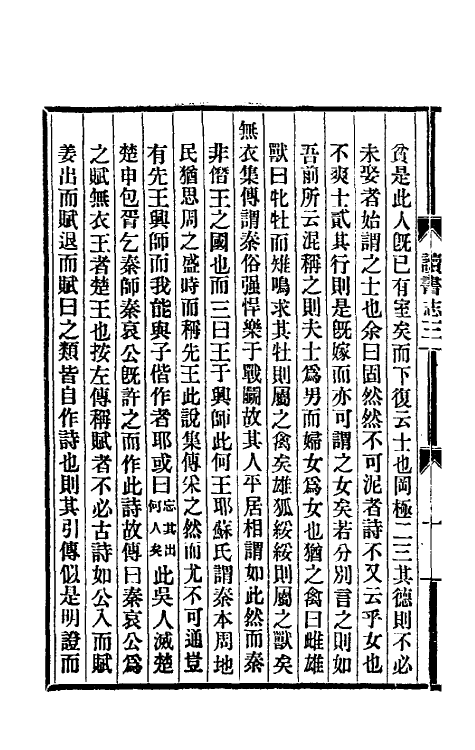 貧是此人旣已有室矣而下復云士也罔極二三其德則不必
未娶者始謂之士也余曰固然然不可泥者詩不又云乎女也
不爽士貳其行則是旣嫁而亦可謂之女矣若分別言之則如
吾前所云混稱之則夫士爲男而婦女爲女也猶之禽曰雌雄
獸曰牝牡而雉鳴求其牡則屬之禽矣雄狐綏綏則屬之獸矣
無衣集傳謂秦俗强悍樂于戰鬬故其人平居相謂如此然而秦
非僭王之國也而三曰王于興師此何王耶蘇氏謂秦本周地
民猶思周之盛時而稱先王此說集傳采之然而尤不可通豈
有先王興師而我能與子偕作者耶或曰忘其出何人矣此吳人滅楚
楚申包胥乞秦師秦哀公旣許之而作此詩故傳曰秦哀公爲
之賦無衣王者楚王也按左傳稱賦者不必古詩如公入而賦
姜出而賦退而賦曰之類皆自作詩也則其引傳似是明證而
讀書志三
十